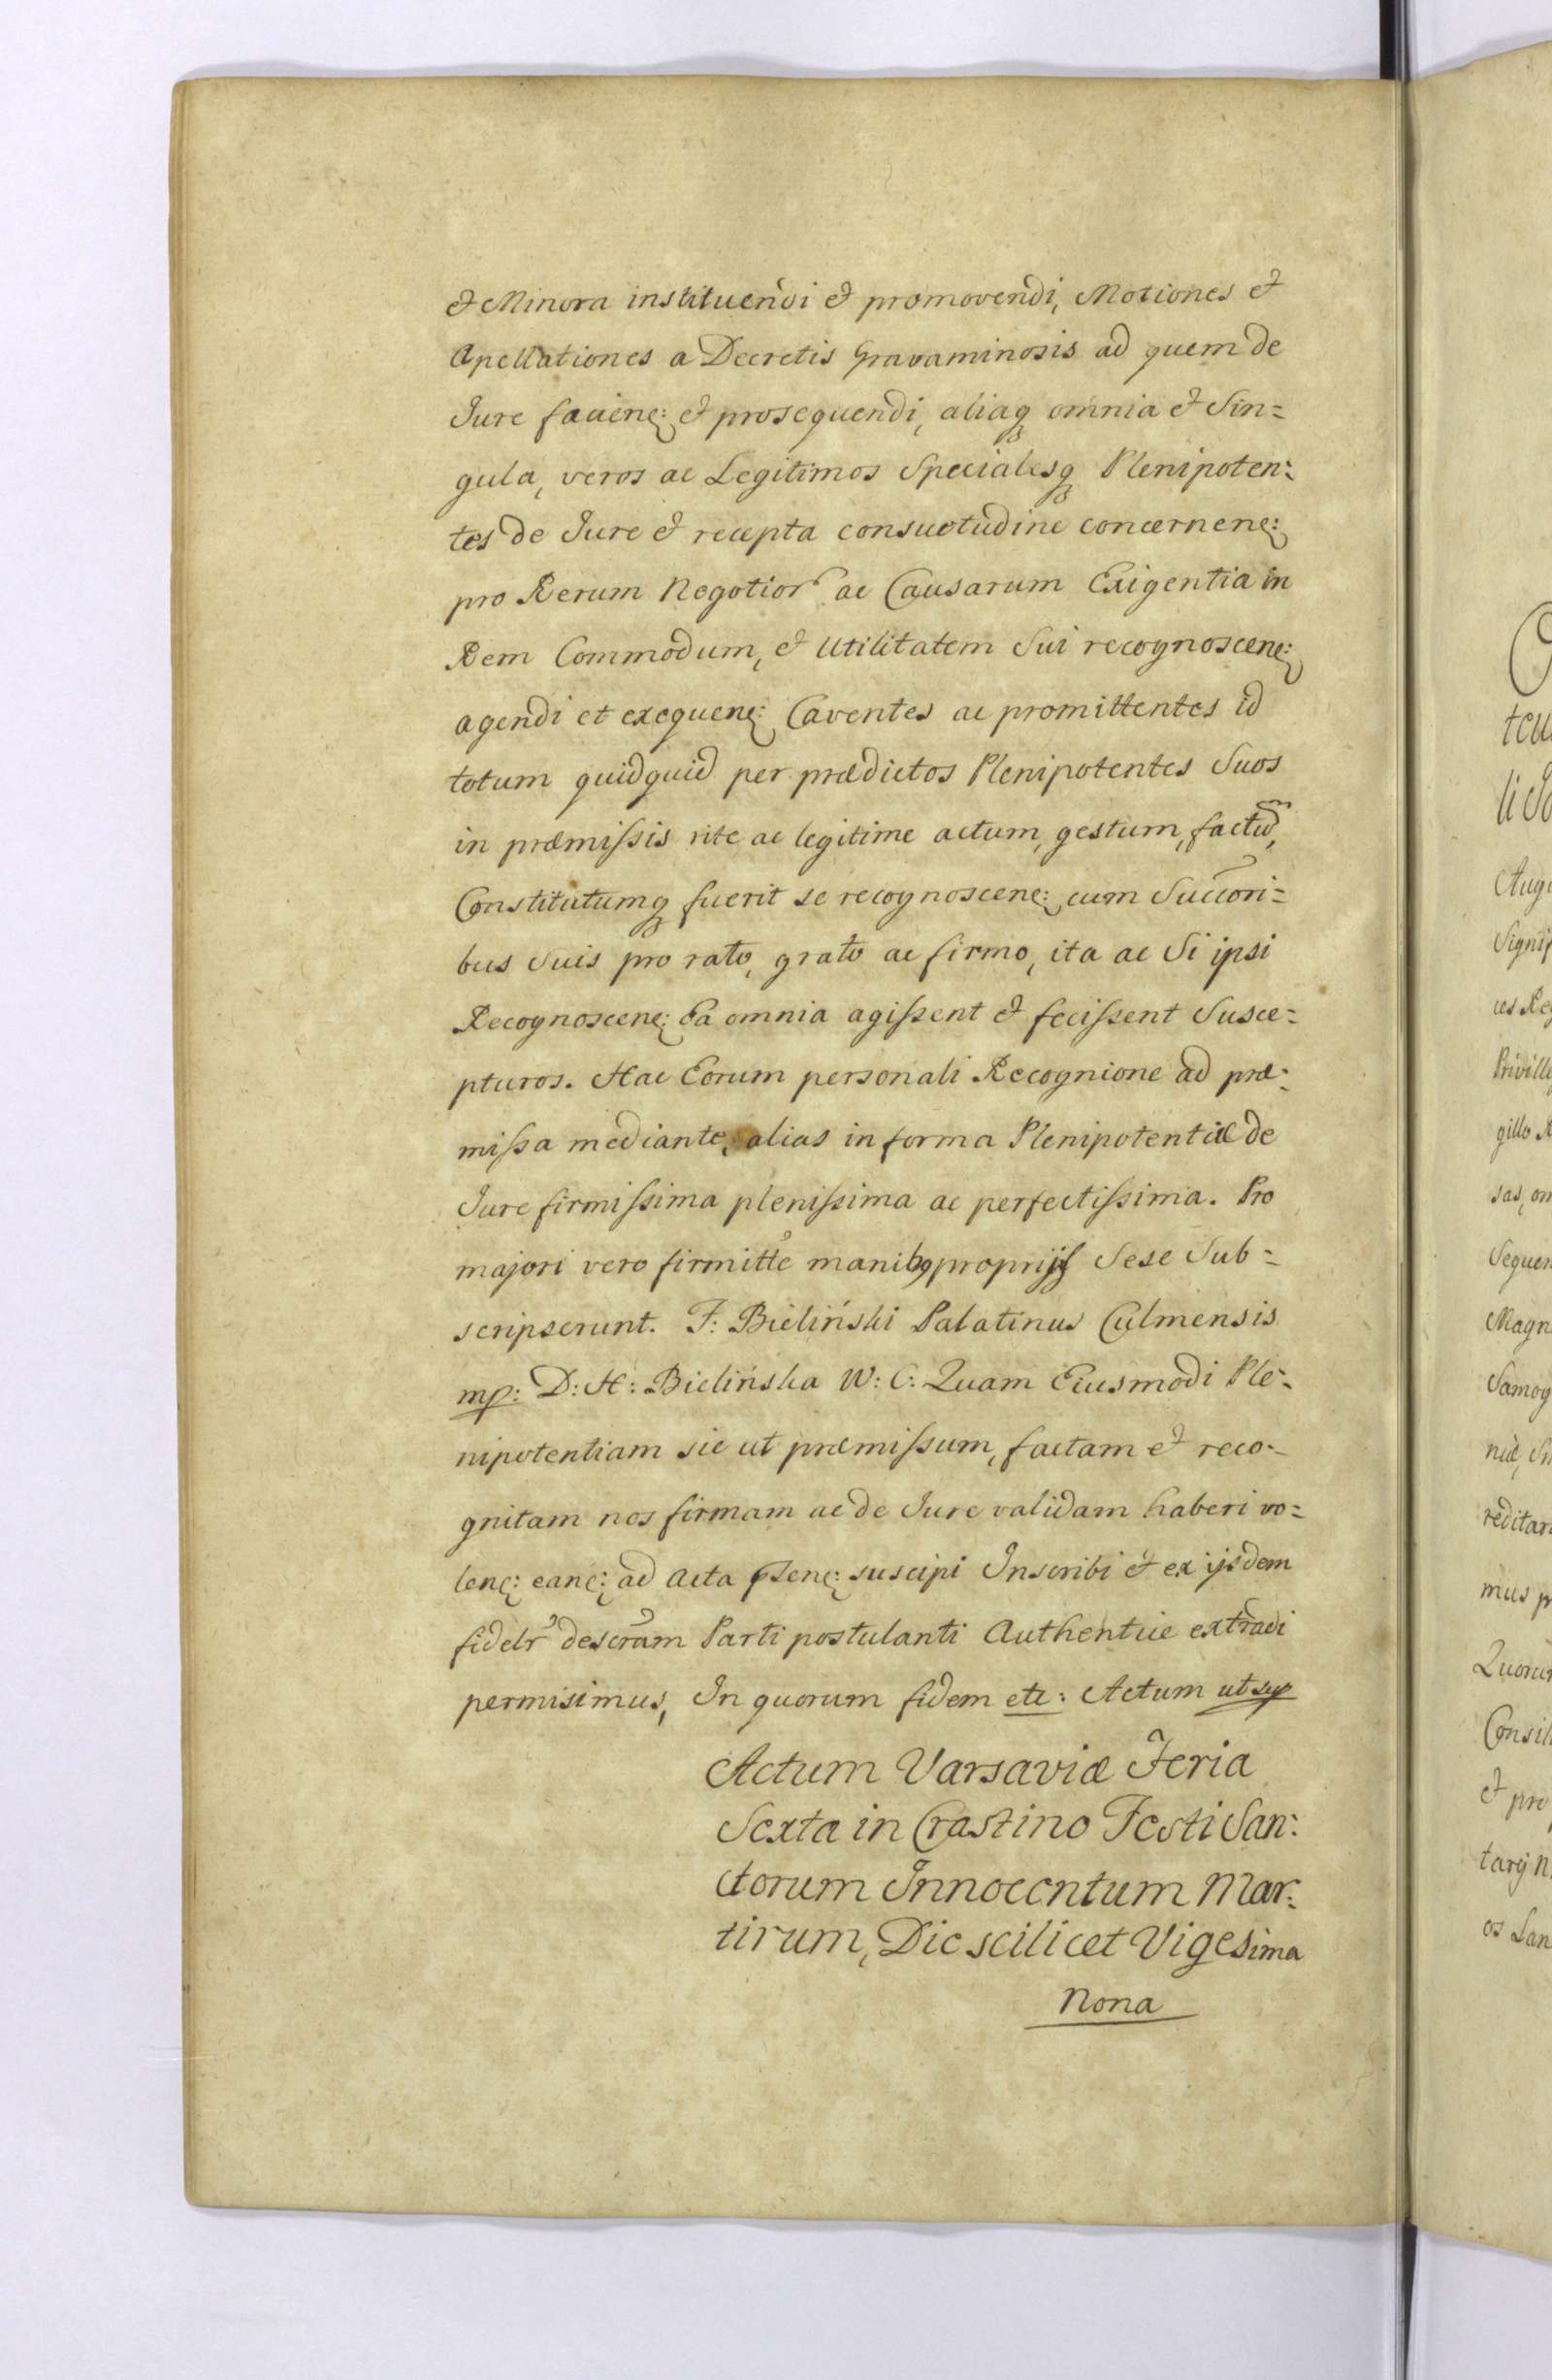 et Minora instituendi et promovendi, Motiones et
Apellationes a Decretis Gravaminosis ad quem de
Jure facien: et prosequendi, aliaq omnia et Sin=
gula, veros ac Legitimos Specialesq Plenipoten=
tes de Jure et recepta consuetudine concernen:
pro Rerum Negotior ac Causarum Exigentia in
Rem Commodum, et Utilitatem Sui recognoscen:
agendi et exequen: Caventes ac promittentes id
totum quidquid per prædictos Plenipotentes Suos
in præmissis rite ac legitime actum, gestum, factū,
Constitutumq fuerit se recognoscen: cum Succori=
bus Suis pro rato, grato ac firmo, ita ac Si ipsi
Recognoscen: Ea omnia agissent et fecissent Susce=
pturos. Hac Eorum personali Recognione ad præ=
missa mediante, alias in forma Plenipotentiæ de
Jure firmissima plenissima ac perfectissima. Pro
majori vero firmitte manibq proprijs Sese Sub=
scripserunt. F: Bieliński Palatinus Culmensis
mp: D: H: Bielińska W: C: Quam Eiusmodi Ple=
nipotentiam sic ut præmissum, factam et reco=
gnitam nos firmam ac de Jure validam haberi vo=
len: ean: ad Acta psen: suscipi Inscribi et ex ijsdem
fidelr descram Parti postulanti Authentice extradi
permisimus, In quorum fidem etc: Actum ut sup
Actum Varsaviæ Feria
Sexta in Crastino Festi San=
ctorum Innocentum Mar=
tirum, Die scilicet Vigesima
Nona